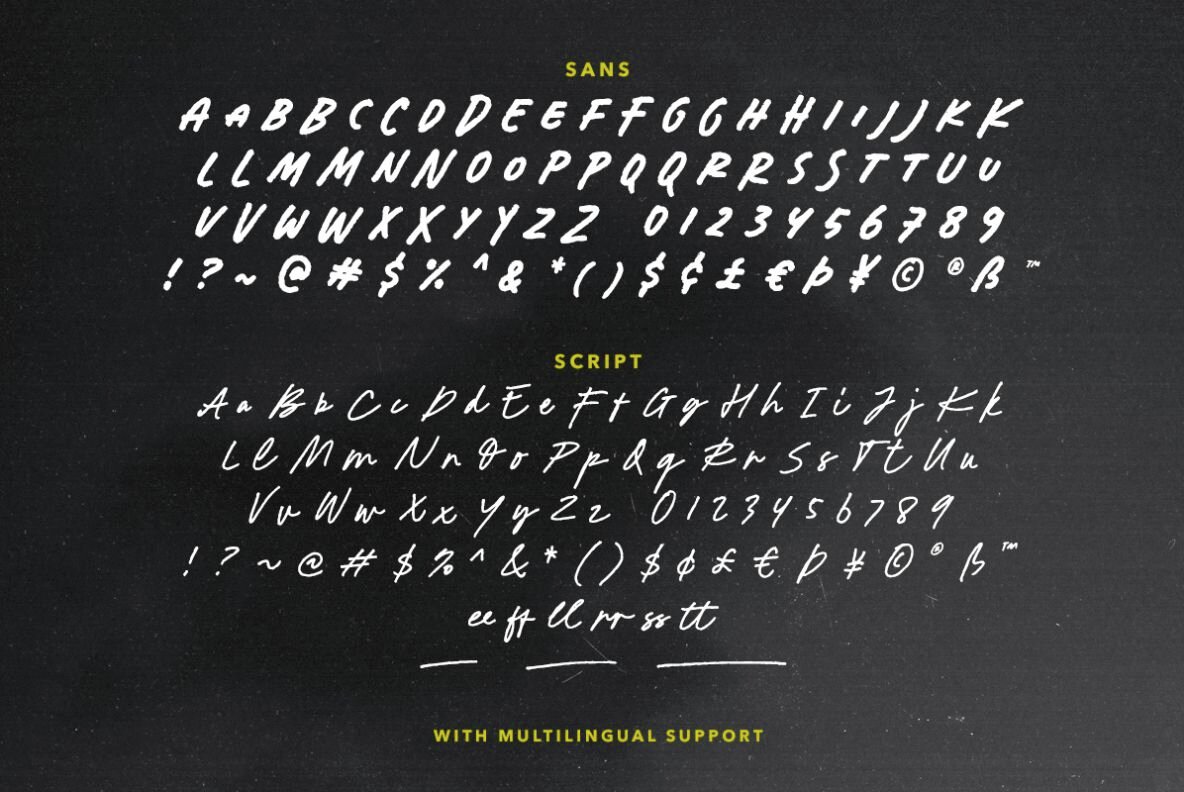 SANS
A A B B C C D D E E F F G G H H I I J J K K
L L M M N N O O P P Q Q R R S S T T U U
V V W W X X Y Y Z Z 0 1 2 3 4 5 6 7 8 9
! ? ~ @ # $ % ^ & * ( ) $ ¢ £ € Þ ¥ © ® ß ™
SCRIPT
A a B b C c D d E e F f G g H h I i J j K k
L l M m N n O o P p Q q R r S s T t U u
V v W w X x Y y Z z 0 1 2 3 4 5 6 7 8 9
! ? ~ @ # $ % ^ & * ( ) $ ¢ £ € Þ ¥ © ® ß ™
ee ff ll rr ss tt
WITH MULTILINGUAL SUPPORT